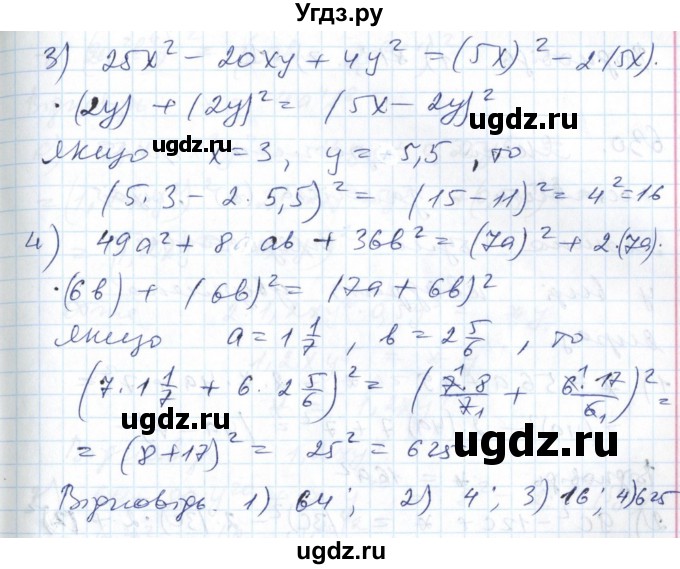 Угдз.ру
3) 25x² - 20xy + 4y² = (5x)² - 2·(5x)·
·(2y) + (2y)² = (5x - 2y)²
ugdz.ru
ugdz.ru
якщо x = 3, y = 5,5, то
(5·3 - 2·5,5)² = (15 - 11)² = 4² = 16
4) 49a² + 8 ab + 36b² = (7a)² + 2·(7a)·
·(6b) + (6b)² = (7a + 6b)²
ugdz.ru
ugdz.ru
якщо a = 1 1/7, b = 2 5/6, то
(7·1 1/7 + 6·2 5/6)² = (7·8/7 + 6·17/6)² =
ugdz.ru
= (8+17)² = 25² = 625
ugdz.ru
Відповідь. 1) 64; 2) 4; 3) 16; 4) 625
ugdz.ru